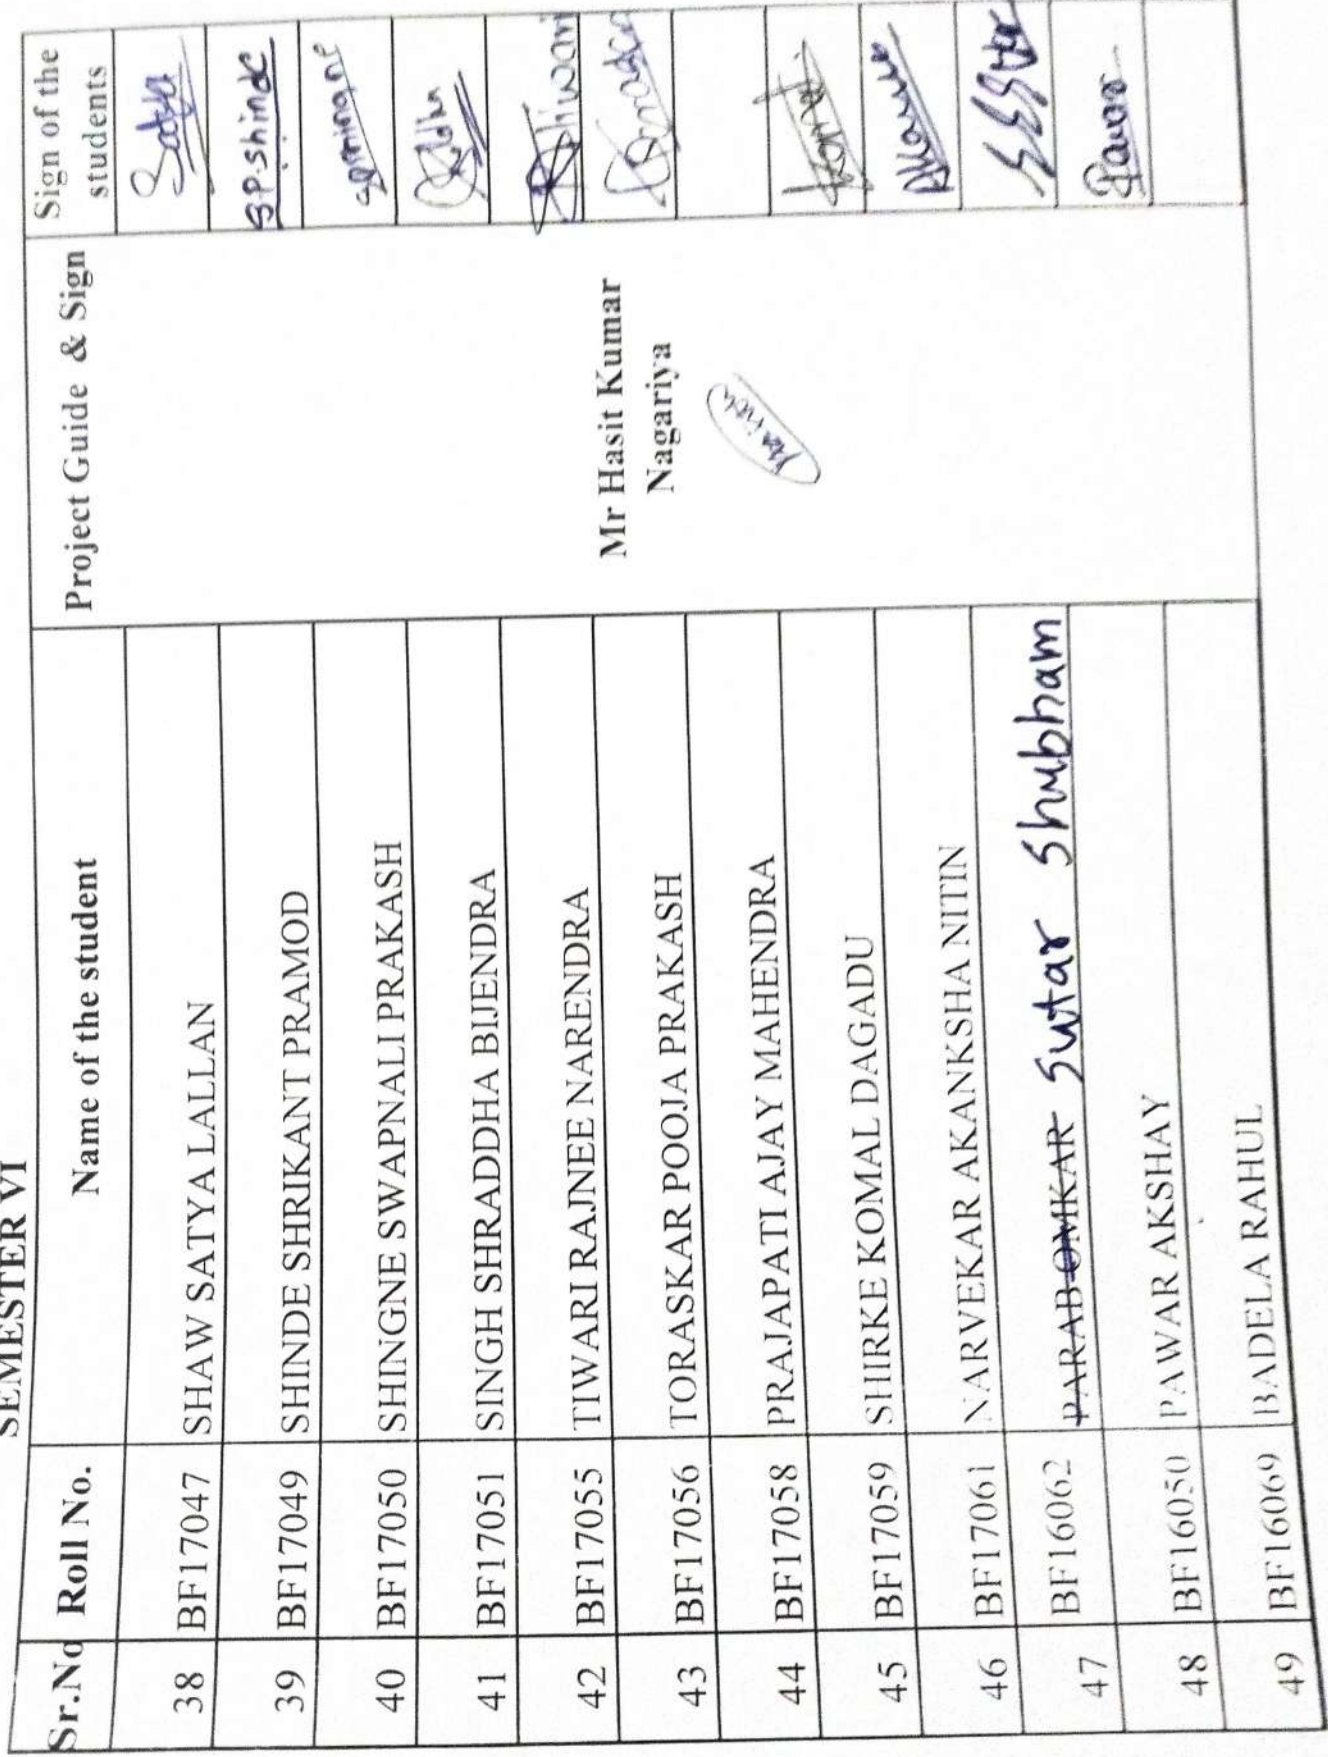 SEMESTER VI
Sr.No Roll No. Name of the student Project Guide & Sign Sign of the students
38 BF17047 SHAW SATYA LALLAN Satya
39 BF17049 SHINDE SHRIKANT PRAMOD S.P.Shinde
40 BF17050 SHINGNE SWAPNALI PRAKASH
41 BF17051 SINGH SHRADDHA BIJENDRA
42 BF17055 TIWARI RAJNEE NARENDRA
43 BF17056 TORASKAR POOJA PRAKASH
Mr Hasit Kumar
Nagariya
44 BF17058 PRAJAPATI AJAY MAHENDRA
45 BF17059 SHIRKE KOMAL DAGADU
46 BF17061 NARVEKAR AKANKSHA NITIN
47 BF16062 PARAB OMKAR Sutar Shubham
48 BF16050 PAWAR AKSHAY
49 BF16069 BADELA RAHUL